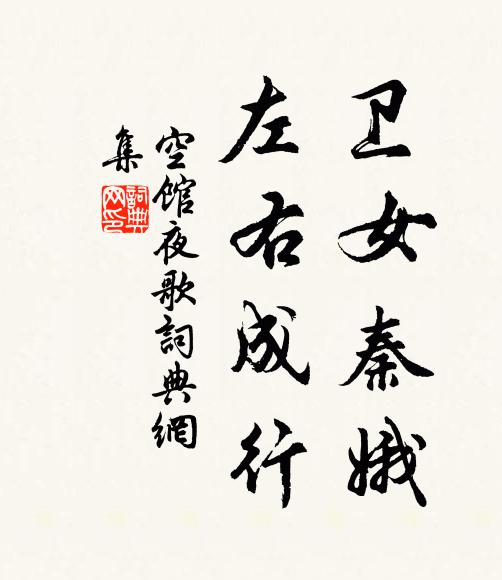 卫女秦娥
左右成行
空館夜歌詞典網
集
詞典网印